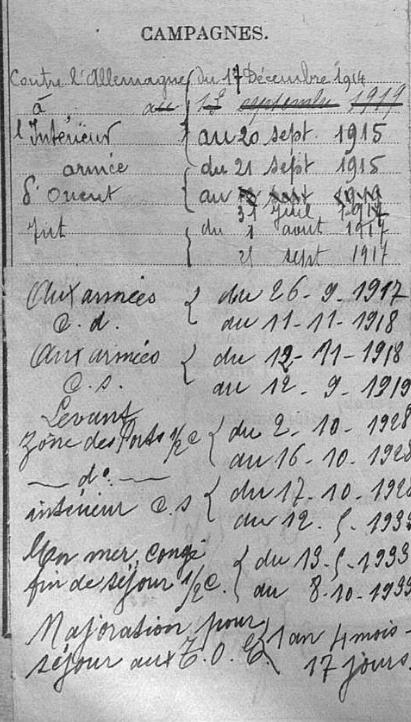 CAMPAGNES.
Contre l'Allemagne { du 17 Décembre 1914
à au 1er septembre 1919
l'Intérieur { au 20 sept. 1915
armée { du 21 sept 1915
d'Orient { au
31 Juil 1917
{ du 1 aout 1917
21 sept 1917
Aux armées { du 26-9-1917
C.d. au 11-11-1918
Aux armées { du 12-11-1918
C.s. au 12-9-1919
Levant
Zone des Ports 1/2 C { du 2-10-1928
au 16-10-1928
— do. — { du 17-10-1928
intérieur C.s au 12.5-1933
en mer, congé { du 13-5-1933
fin de séjour 1/2 C. au 8-10-1933
Majoration pour { 1 an 4 mois-
séjour aux T.O.E. 17 jours.